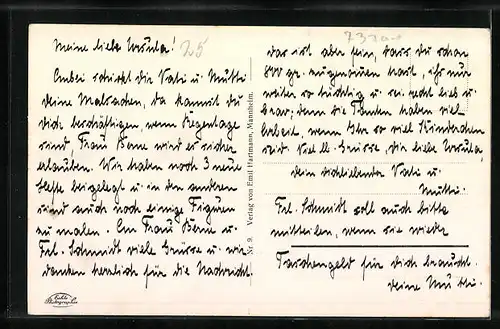 Meine liebe Ursula!
25
Anbei schickt dir Vati u. Mutti
deine Malsachen, da kannst du
dich beschäftigen, wenn Regentage
sind, Frau Benn wird es sicher
erlauben. Wir haben noch 3 neue
Hefte beigelegt u. in den anderen
sind auch noch einige Figuren
zu malen. An Frau Benn u.
Frl. Schmidt viele Grüsse u. wir
danken herzlich für die Nachricht.
Echte Photographie
Nr. 9. Verlag von Emil Hartmann, Mannheim.
das ist aber fein, dass du schon
800 gr. zugenommen hast, ihr nur
weiter so tüchtig u. sei recht lieb u.
brav; denn die Tanten haben viel
Arbeit, wenn Ihr so viel Kinderchen
seid. Viel Grüsse, du liebe Ursula,
dein dichliebender Vati u.
Mutti.
Frl. Schmidt soll auch bitte
mitteilen, wenn sie wieder
Taschengeld für dich braucht.
Deine Mutti.